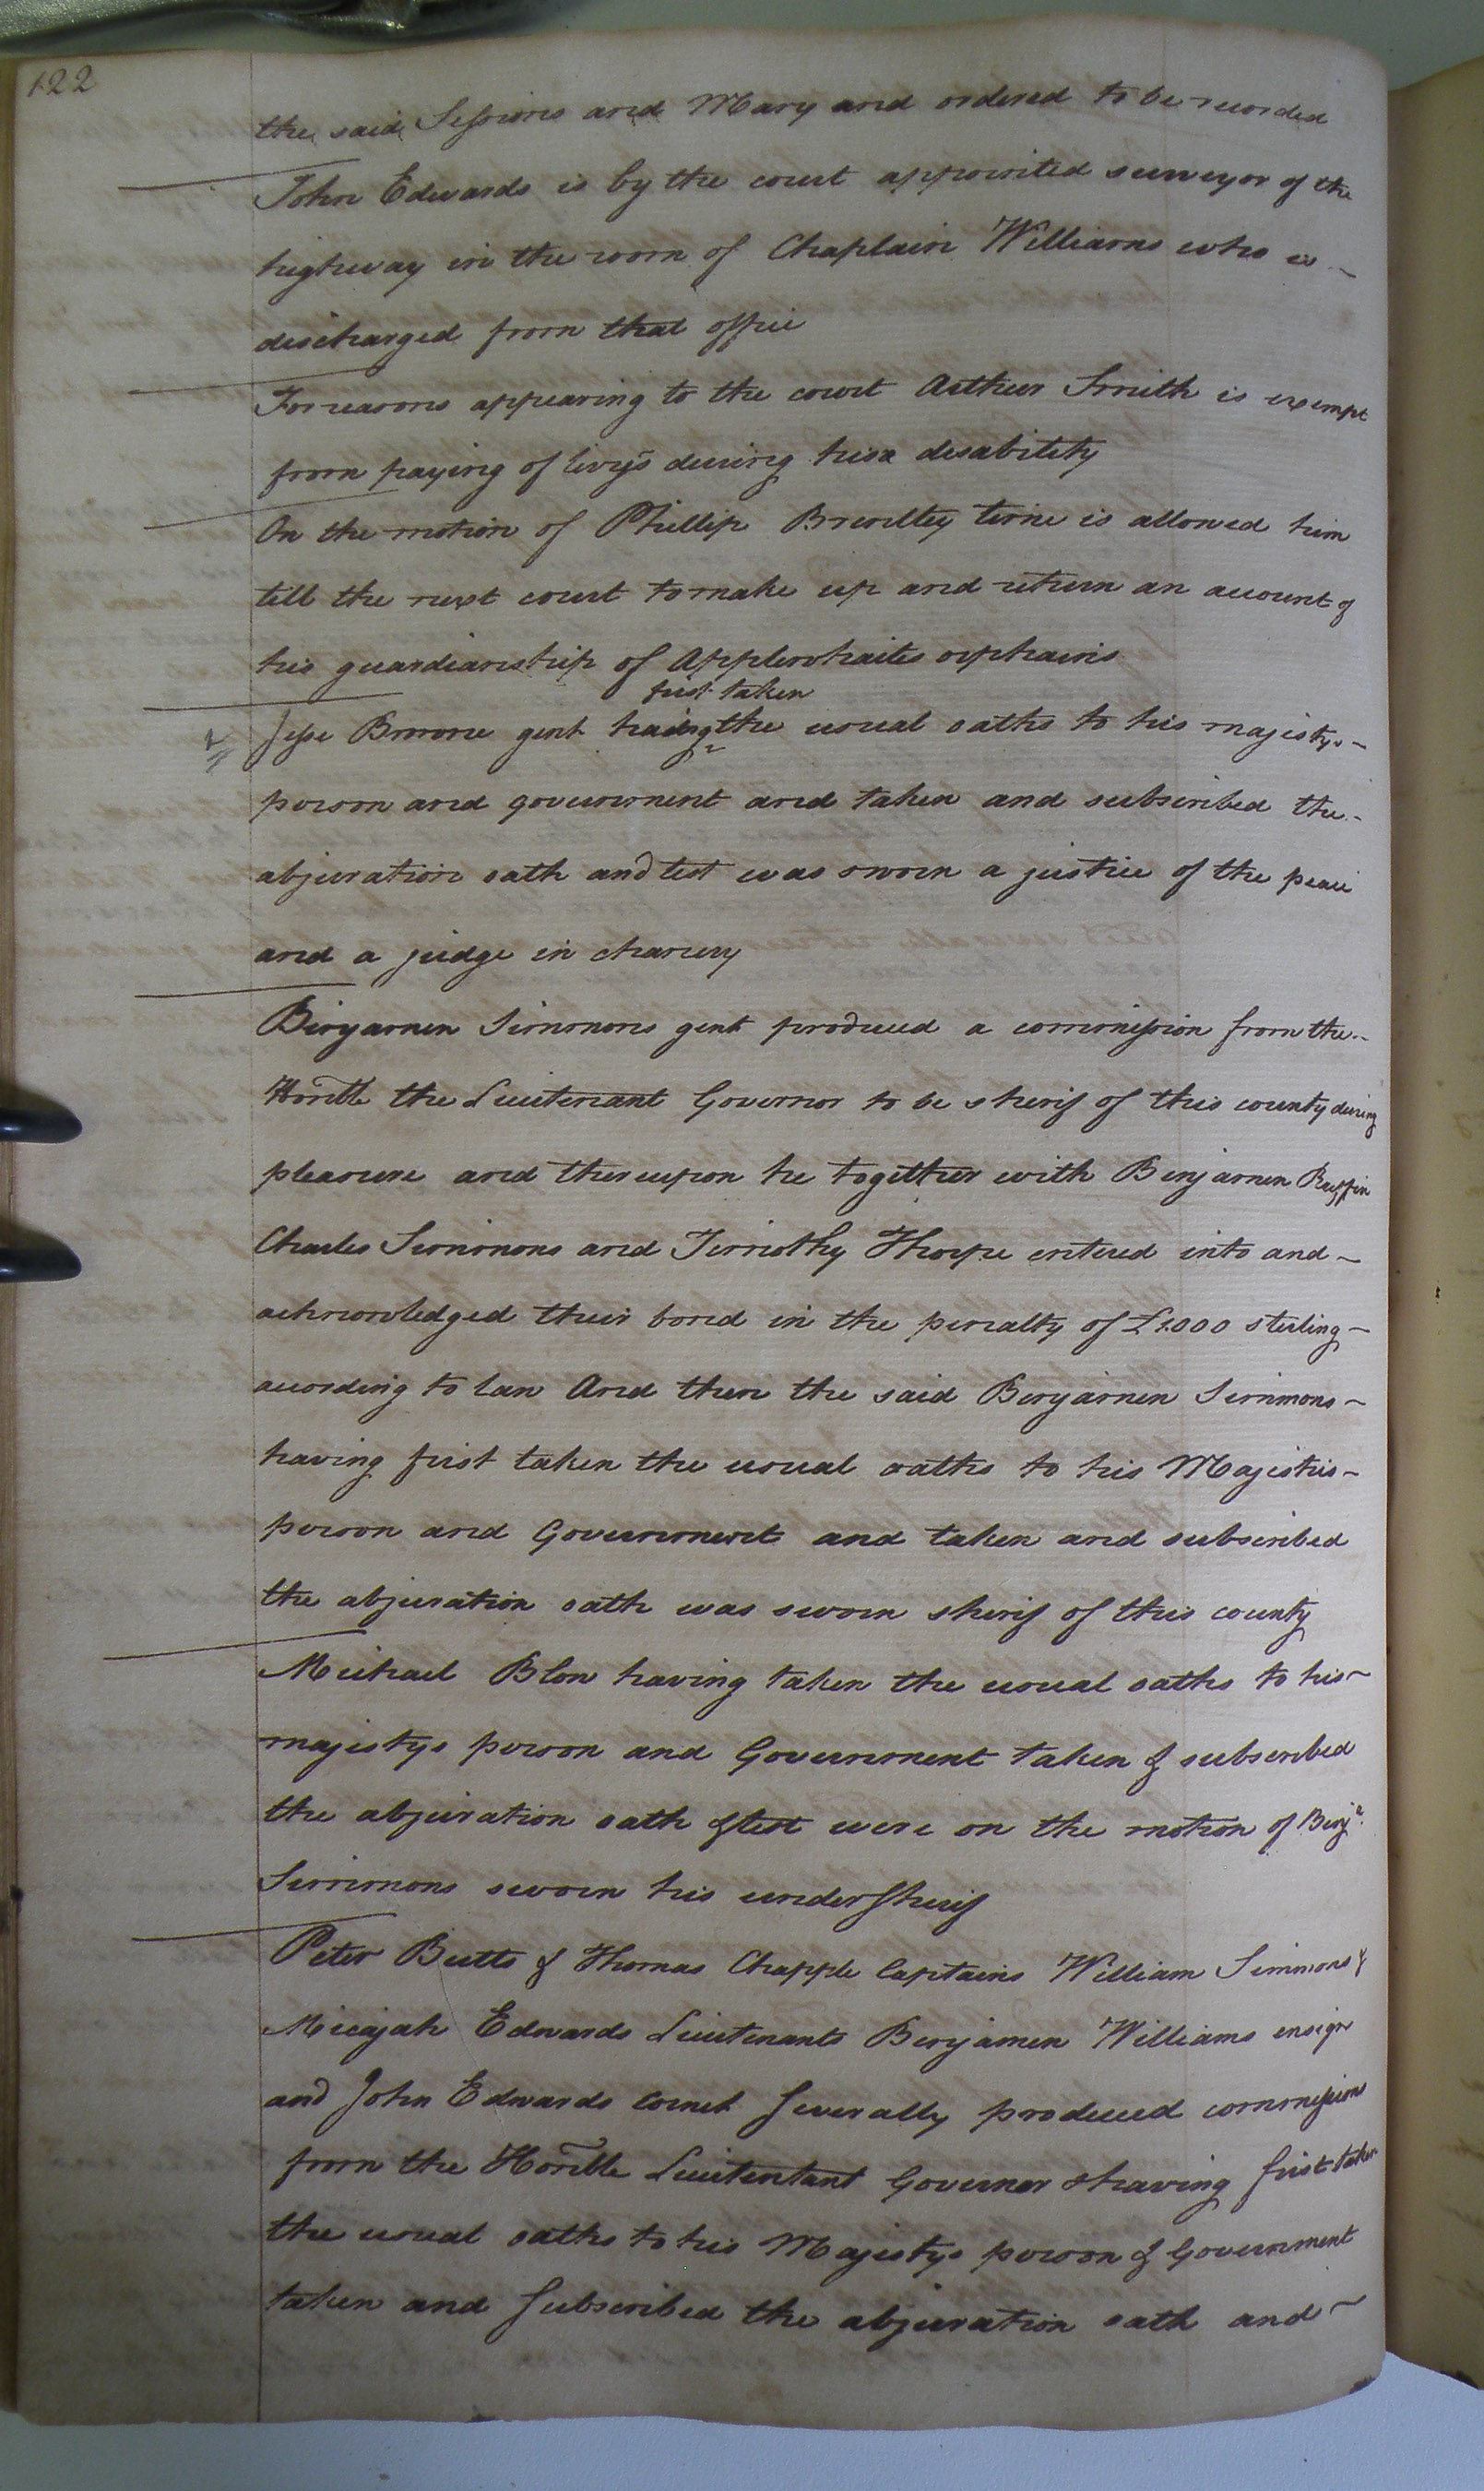 122
the said Sessions and Mary and ordered to be recorded
John Edwards is by the court appointed surveyor of the
highway in the room of Chaplain Williams who is
discharged from that office
For reasons appearing to the court Arthur Smith is exempt
from paying of livys during his disability
On the motion of Phillip Brewlley time is allowed him
till the next court to make up and return an account of
his guardianship of Applewhaites orphains
first taken
Jesse Browne gent having the usual oaths to his majestys
person and government and taken and subscribed the
abjuration oath and test was sworn a justice of the peace
and a judge in chancry
Benjamen Simmons gent produced a commission from the
Honble the Lieutenant Governor to be sherif of this county during
pleasure and thereupon he together with Benjamen Ruffin
Charles Simmons and Timothy Thorpe entered into and
acknowledged their bond in the penalty of £1000 sterling
according to law And then the said Benjamen Simmons
having first taken the usual oaths to his Majesties
person and Government and taken and subscribed
the abjuration oath was sworn sherif of this county
Michael Blow having taken the usual oaths to his
majestys person and Government taken & subscribed
the abjuration oath & test were on the motion of Benja.
Simmons sworn his under Sherif
Peter Butts & Thomas Chapple Captains William Simmons &
Micajah Edwards Lieutenants Benjamen Williams ensign
and John Edwards cornet Severally produced commissions
from the Honble Lieutentant Governer & having first taken
the usual oaths to his Majestys person & Government
taken and Subscribed the abjuration oath and